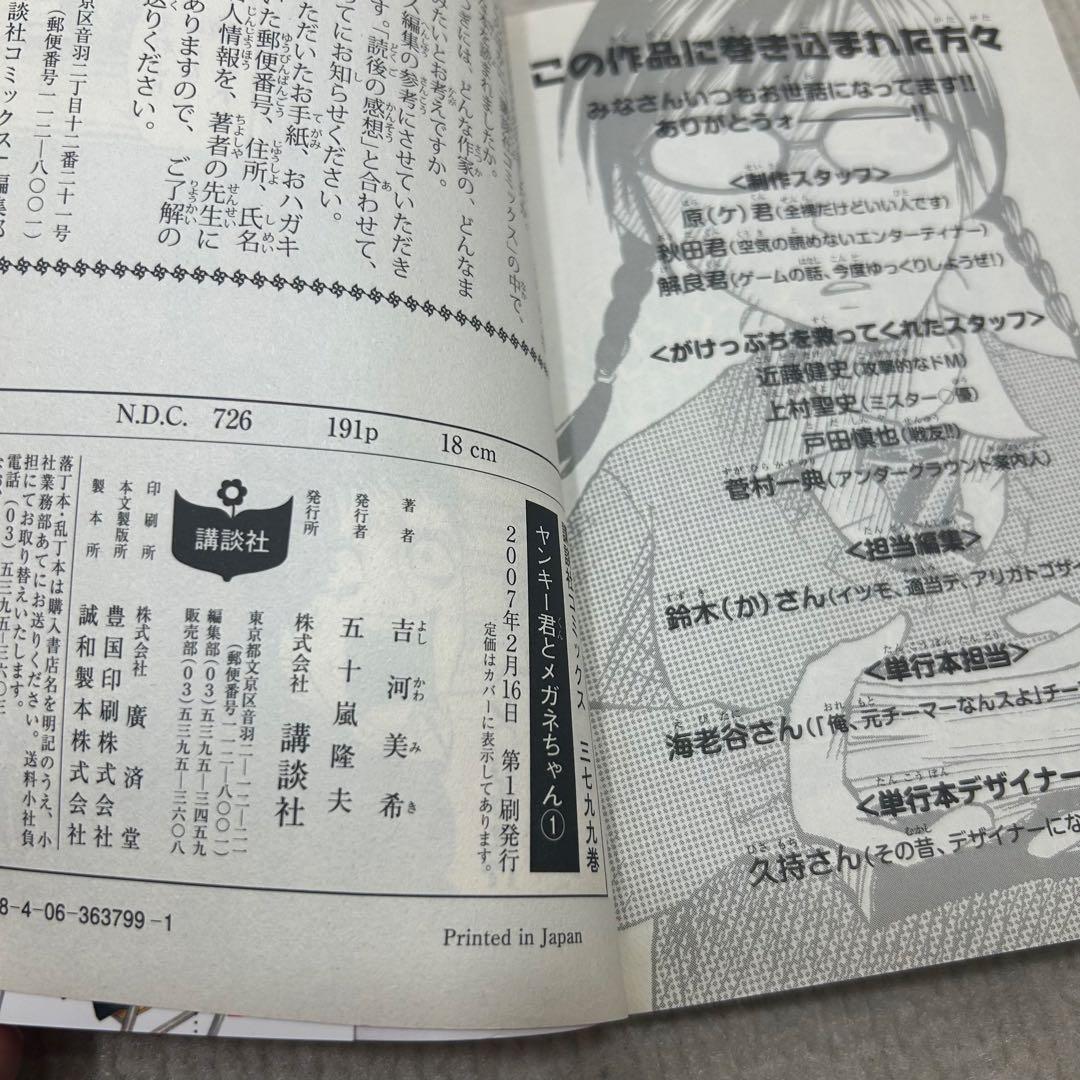 この作品に巻き込まれた方々
みなさんいつもお世話になってます!!
ありがとうォ――――!!
<制作スタッフ>
原(ケ)君(全裸だけどいい人です)
秋田君(空気の読めないエンターティナー)
解良君(ゲームの話、今度ゆっくりしようぜ!)
<がけっぷちを救ってくれたスタッフ>
近藤健史(攻撃的なドM)
上村聖史(ミスター♡優)
戸田慎也(戦友!!)
菅村一典(アンダーグラウンド案内人)
<担当編集>
鈴木(か)さん(イツモ、適当デ、アリガトゴザイ
<単行本担当>
海老谷さん(「俺、元チーマーなんスよ」チー
<単行本デザイナー
久持さん(その昔、デザイナーにな
の中で、
なを感じまれましたか。
には、どんな作家の、どんなま
みたいとお考えですか。
編集の参考にさせていただき
す。「読後の感想」と合わせて、
てにお知らせください。
ただいたお手紙、おハガキ
いた郵便番号、住所、氏名
人情報を、著者の先生に
ありますので、ご了解の
送りください。
京区音羽二丁目十二番二十一号
(郵便番号一一二-八〇〇一)
談社コミックス」編集部
N.D.C. 726 191p 18 cm
講談社コミックス 三七九九巻
ヤンキー君とメガネちゃん①
2007年2月16日 第1刷発行
定価はカバーに表示してあります。
著者 吉河美希
発行者 五十嵐隆夫
発行所 株式会社 講談社
東京都文京区音羽二-一二-二一
(郵便番号一一二-八〇〇一)
編集部(03)五三九五-三四五九
販売部(03)五三九五-三六〇八
講談社
印刷所 株式会社 廣済堂
本文製版所 豊国印刷株式会社
製本所 誠和製本株式会社
落丁本・乱丁本は購入書店名を明記のうえ、小
社業務部あてにお送りください。送料小社負
担にてお取り替えいたします。
電話(03)五三九五-三六〇三
8-4-06-363799-1
Printed in Japan